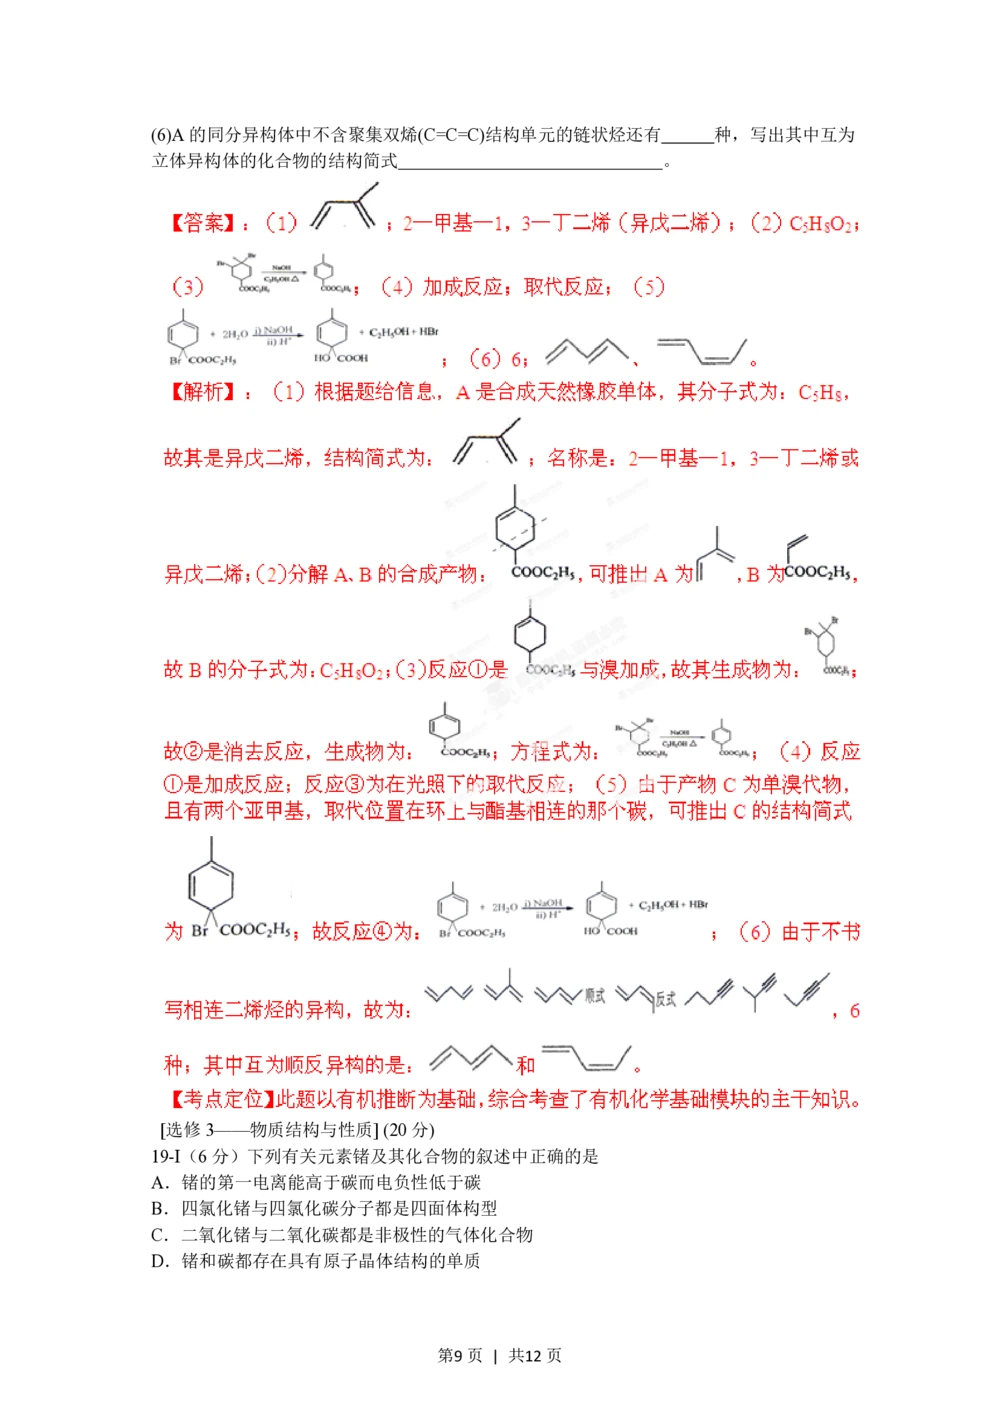 (6)A 的同分异构体中不含聚集双烯(C=C=C)结构单元的链状烃还有______种，写出其中互为
立体异构体的化合物的结构简式______________________________。
【答案】：（1） ；2—甲基—1，3—丁二烯（异戊二烯）；（2）C₅H₈O₂；
（3） Br Br COOC₂H₅ NaOH C₂H₅OH △ COOC₂H₅ ；（4）加成反应；取代反应；（5）
Br COOC₂H₅ + 2H₂O i) NaOH ii) H⁺ HO COOH + C₂H₅OH + HBr ；（6）6； 、 。
【解析】：（1）根据题给信息，A 是合成天然橡胶单体，其分子式为：C₅H₈，
故其是异戊二烯，结构简式为： ；名称是：2—甲基—1，3—丁二烯或
异戊二烯；（2）分解 A、B 的合成产物： COOC₂H₅ ，可推出 A 为 ，B 为 COOC₂H₅ ，
故 B 的分子式为：C₅H₈O₂；（3）反应①是 COOC₂H₅ 与溴加成，故其生成物为： Br Br COOC₂H₅ ；
故②是消去反应，生成物为： COOC₂H₅ ；方程式为： Br Br COOC₂H₅ NaOH C₂H₅OH △ COOC₂H₅ ；（4）反应
①是加成反应；反应③为在光照下的取代反应；（5）由于产物 C 为单溴代物，
且有两个亚甲基，取代位置在环上与酯基相连的那个碳，可推出 C 的结构简式
为 Br COOC₂H₅ ；故反应④为： Br COOC₂H₅ + 2H₂O i) NaOH ii) H⁺ HO COOH + C₂H₅OH + HBr ；（6）由于不书
写相连二烯烃的异构，故为： 顺式 反式 ，6
种；其中互为顺反异构的是： 和 。
【考点定位】此题以有机推断为基础，综合考查了有机化学基础模块的主干知识。
[选修 3——物质结构与性质] (20 分)
19-I（6 分）下列有关元素锗及其化合物的叙述中正确的是
A．锗的第一电离能高于碳而电负性低于碳
B．四氯化锗与四氯化碳分子都是四面体构型
C．二氧化锗与二氧化碳都是非极性的气体化合物
D．锗和碳都存在具有原子晶体结构的单质
第9 页 | 共12 页